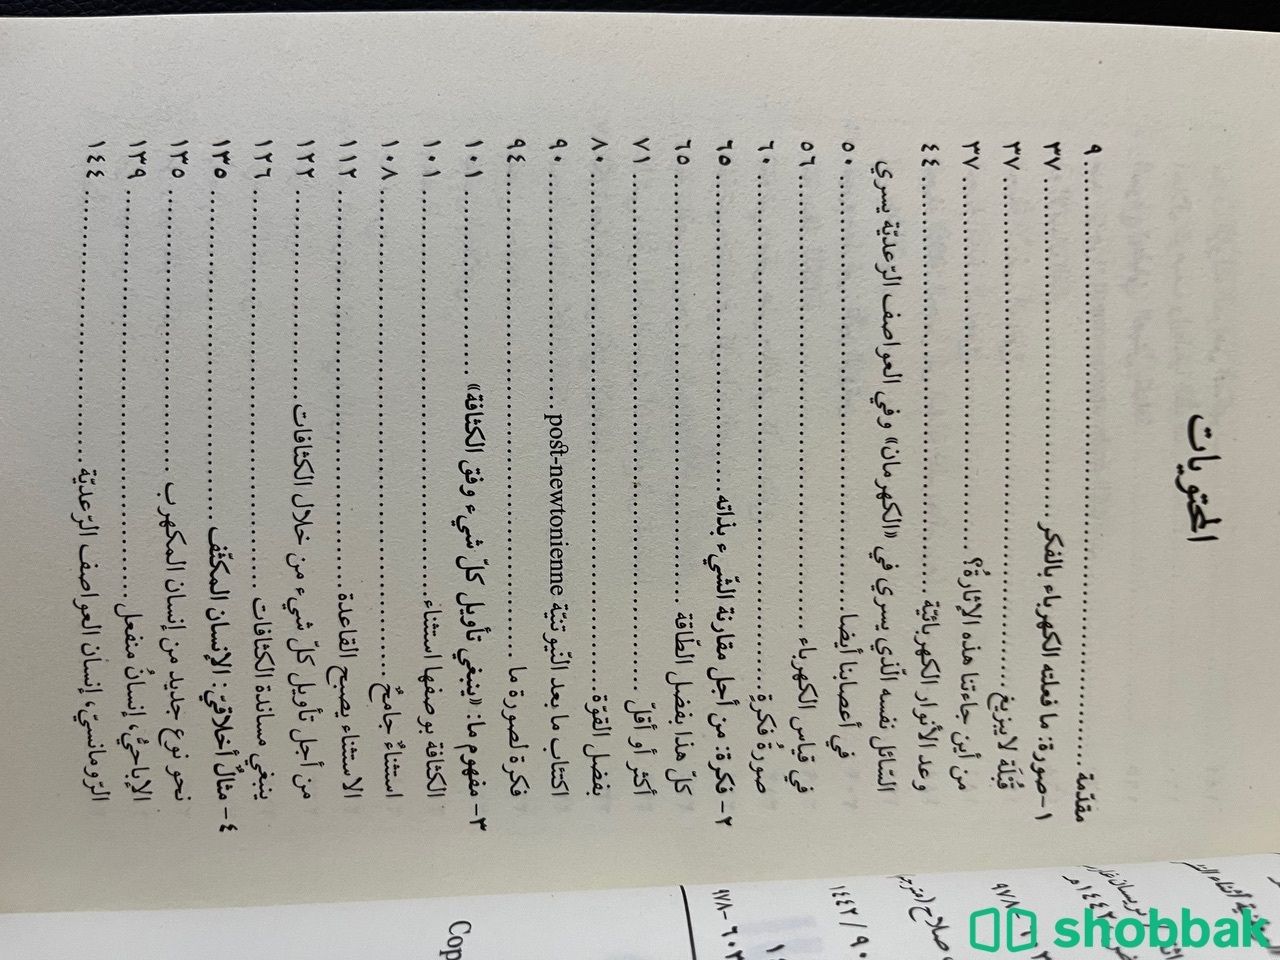 المحتويات
مقدّمة ٩
١- صورة: ما فعلته الكهرباء بالفكر ٣٧
قُبَلة لايبزيغ ٣٧
من أين جاءتنا هذه الإثارة؟ ٣٧
وعد الأنوار الكهربائيّة ٤٤
السّائل نفسه الّذي يسري في «الكهرمان» وفي العواصف الرّعديّة يسري
في أعصابنا أيضا ٥٠
في قياس الكهرباء ٥٦
صورةُ فكرةٍ ٦٠
٢- فكرة: من أجل مقارنة الشّيء بذاته ٦٥
كلّ هذا بفضل الطّاقة ٦٥
أكثر أو أقلّ ٧١
بفضل القوّة ٨٠
اكتئاب ما بعد النّيوتنيّة post-newtonienne ٩٠
فكرة لصورة ما ٩٤
٣- مفهوم ما: «ينبغي تأويل كلّ شيء وفق الكثافة» ١٠١
الكثافة بوصفها استثناء ١٠١
استثناءٌ جامحٌ ١٠٨
الاستثناء يصبح القاعدة ١١٢
من أجل تأويل كلّ شيء من خلال الكثافات ١٢٢
ينبغي مساندة الكثافات ١٢٦
٤- مثالٌ أخلاقيّ: الإنسان المكثّف ١٣٥
نحو نوع جديد من إنسان المكهرب ١٣٥
الإباحيُّ، إنسانٌ منفعل ١٣٩
الرّومانسيّ، إنسان العواصف الرّعديّة ١٤٤
Cop
shobbak